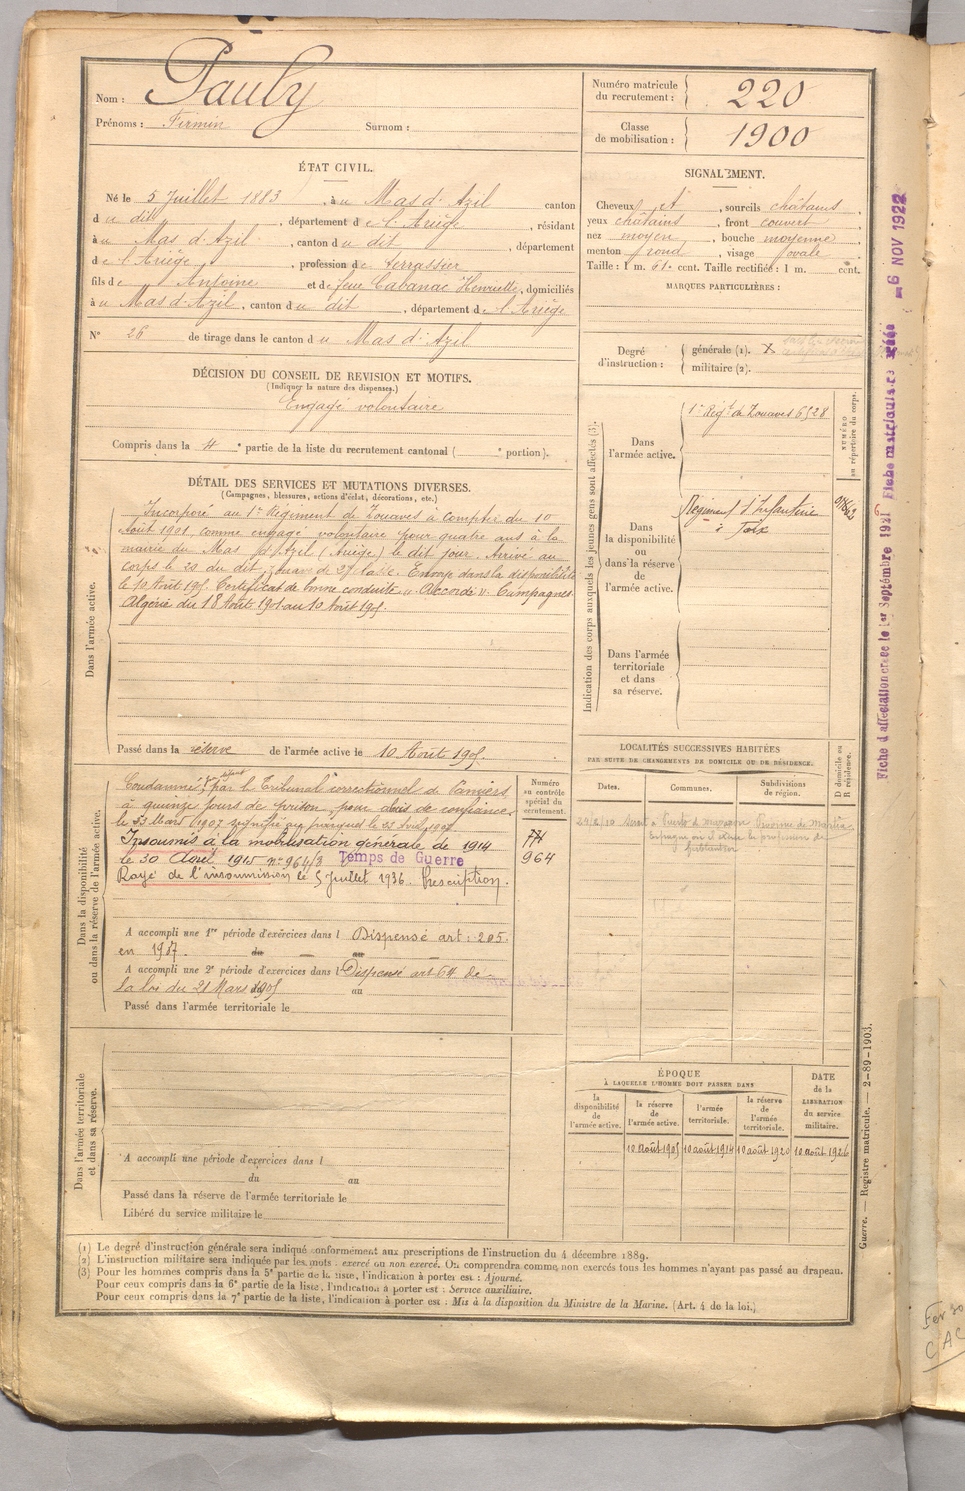 Nom : Pauly
Prénoms : Firmin Surnom :
Numéro matricule du recrutement : 220
Classe de mobilisation : 1900
ÉTAT CIVIL.
Né le 5 Juillet 1883, à u Mas d'Azil canton
d u dit, département d e l'Ariège, résidant
à u Mas d'Azil, canton d u dit, département
d e l'Ariège, profession de terrassier
fils d e Antoine et de feue Cabanac Henriette, domiciliés
à u Mas d'Azil, canton d u dit, département d e l'Ariège
N° 26 de tirage dans le canton d u Mas d'Azil
DÉCISION DU CONSEIL DE REVISION ET MOTIFS.
(Indiquer la nature des dispenses.)
Engagé volontaire
Compris dans la 4e partie de la liste du recrutement cantonal ( e portion).
DÉTAIL DES SERVICES ET MUTATIONS DIVERSES.
(Campagnes, blessures, actions d'éclat, décorations, etc.)
Dans l'armée active.
Incorporé au 1er Régiment de Zouaves à compter du 10
Août 1901, comme engagé volontaire pour quatre ans à la
mairie du Mas d'Azil (Ariège) le dit jour. Arrivé au
corps le 20 du dit, Envoyé dans la disponibilité
le 10 Août 1905. Certificat de bonne conduite "Accordé". Campagnes
Algérie du 18 Août 1901 au 10 Août 1905.
Passé dans la réserve de l'armée active le 10 Août 1905.
Dans la disponibilité ou dans la réserve de l'armée active.
Condamné par le Tribunal correctionnel de Pamiers
à quinze jours de prison pour abus de confiance
le Mars 1907
Insoumis à la mobilisation générale de 1914
le 30 Avril 1915 n° 964/3 Temps de Guerre
Rayé de l'insoumission le 5 Juillet 1936. Prescription.
Numéro au contrôle spécial du recrutement.
774
964
A accompli une 1re période d'exercices dans l Dispensé art : 205.
en 1907. du au
A accompli une 2e période d'exercices dans l Dispensé art 64 de
la loi du 21 Mars 1905 du au
Passé dans l'armée territoriale le
Dans l'armée territoriale et dans sa réserve.
A accompli une période d'exercices dans l
du au
Passé dans la réserve de l'armée territoriale le
Libéré du service militaire le
SIGNALEMENT.
Cheveux et, sourcils châtains,
yeux châtains, front couvert
nez moyen, bouche moyenne
menton rond, visage ovale
Taille : 1 m. 61 cent. Taille rectifiée : 1 m. cent.
MARQUES PARTICULIÈRES :
Degré d'instruction :
générale (1). X
militaire (2).
Indication des corps auxquels les jeunes gens sont affectés (3).
NUMÉRO au répertoire du corps.
Dans l'armée active.
1er Régt de Zouaves 6528
Dans la disponibilité ou dans la réserve de l'armée active.
Régiment d'Infanterie
à Foix
Dans l'armée territoriale et dans sa réserve.
LOCALITÉS SUCCESSIVES HABITÉES
PAR SUITE DE CHANGEMENTS DE DOMICILE OU DE RÉSIDENCE.
Dates. Communes. Subdivisions de région. D domicile ou R résidence.
Espagne où il exerce la profession de
ÉPOQUE
À LAQUELLE L'HOMME DOIT PASSER DANS
la disponibilité de l'armée active.
la réserve de l'armée active.
l'armée territoriale.
la réserve de l'armée territoriale.
DATE de la LIBÉRATION du service militaire.
10 août 1905 10 août 1914 10 août 1920 10 août 1926
(1) Le degré d'instruction générale sera indiqué conformément aux prescriptions de l'instruction du 4 décembre 1889.
(2) L'instruction militaire sera indiquée par les mots : exercé ou non exercé. On comprendra comme non exercés tous les hommes n'ayant pas passé au drapeau.
(3) Pour les hommes compris dans la 5e partie de la liste, l'indication à porter est : Ajourné.
Pour ceux compris dans la 6e partie de la liste, l'indication à porter est : Service auxiliaire.
Pour ceux compris dans la 7e partie de la liste, l'indication à porter est : Mis à la disposition du Ministre de la Marine. (Art. 4 de la loi.)
Guerre. — Registre matricule. — 2-89-1903.
Fiche d'affectation créée le 1er Septembre 1921 Fiche matriculaire créée 6 NOV 1922